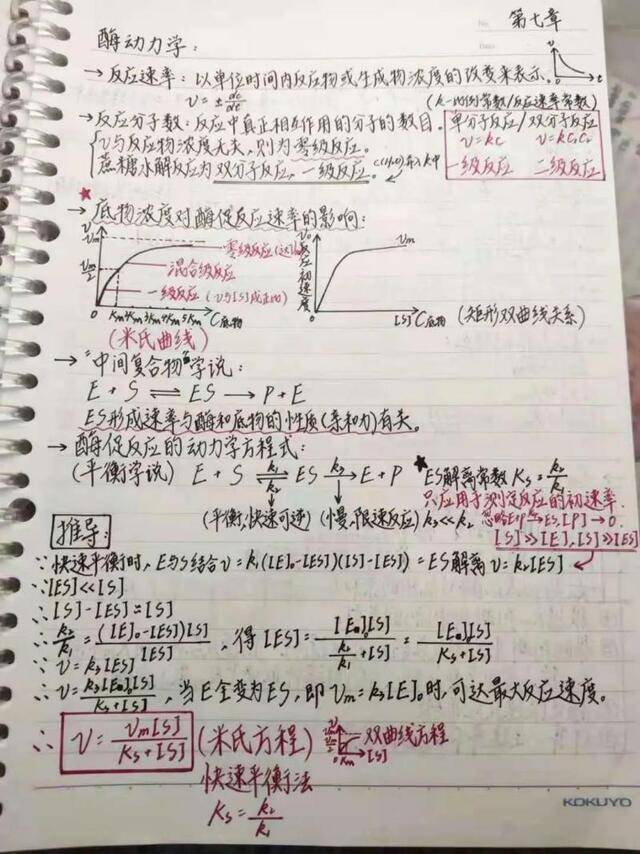 No.
第七章
Date
酶动力学:
→反应速率:以单位时间内反应物或生成物浓度的改变来表示.
v=±dc/dt
(k-比例常数/反应速率常数)
→反应分子数:反应中真正相互作用的分子的数目。
单分子反应/双分子反应
v=kc v=kC₁C₂
一级反应 二级反应
{v与反应物浓度无关,则为零级反应。
蔗糖水解反应为双分子反应,一级反应。
★
→底物浓度对酶促反应速率的影响:
v
Vm
Vm/2
零级反应
混合级反应
一级反应
Km 2Km 3Km 4Km 5Km C底物
(米氏曲线)
反应初速度
Vm
[S] C底物
(矩形双曲线关系)
→"中间复合物"学说:
E + S ⇌ ES → P + E
ES形成速率与酶和底物的性质(亲和力)有关。
→酶促反应的动力学方程式:
(平衡学说) E + S ⇌ ES → E + P
k₁ k₂ k₃
★ES解离常数 Ks = k₂/k₁
只应用于测定反应的初速率.
(平衡,快速可逆) (慢,限速反应) k₃<<k₂
[P]→0.
[S]>>[E],[S]>>[ES]
推导:
∵快速平衡时,E与S结合v=k₁([E]₀-[ES])([S]-[ES])=ES解离v=k₂[ES]
∵[ES]<<[S]
∴[S]-[ES]≈[S]
∴k₂/k₁=([E]₀-[ES])[S]/[ES],得[ES]=[E]₀[S]/(k₂/k₁+[S])=[E]₀[S]/(Ks+[S])
∵v=k₃[ES]
∴v=k₃[E]₀[S]/(Ks+[S]),当E全变为ES,即Vm=k₃[E]₀时,可达最大反应速度。
∴v=Vm[S]/(Ks+[S]) (米氏方程)
Vm
Vm/2
0 Km [S]
双曲线方程
快速平衡法
Ks=k₂/k₁
KOKUYO